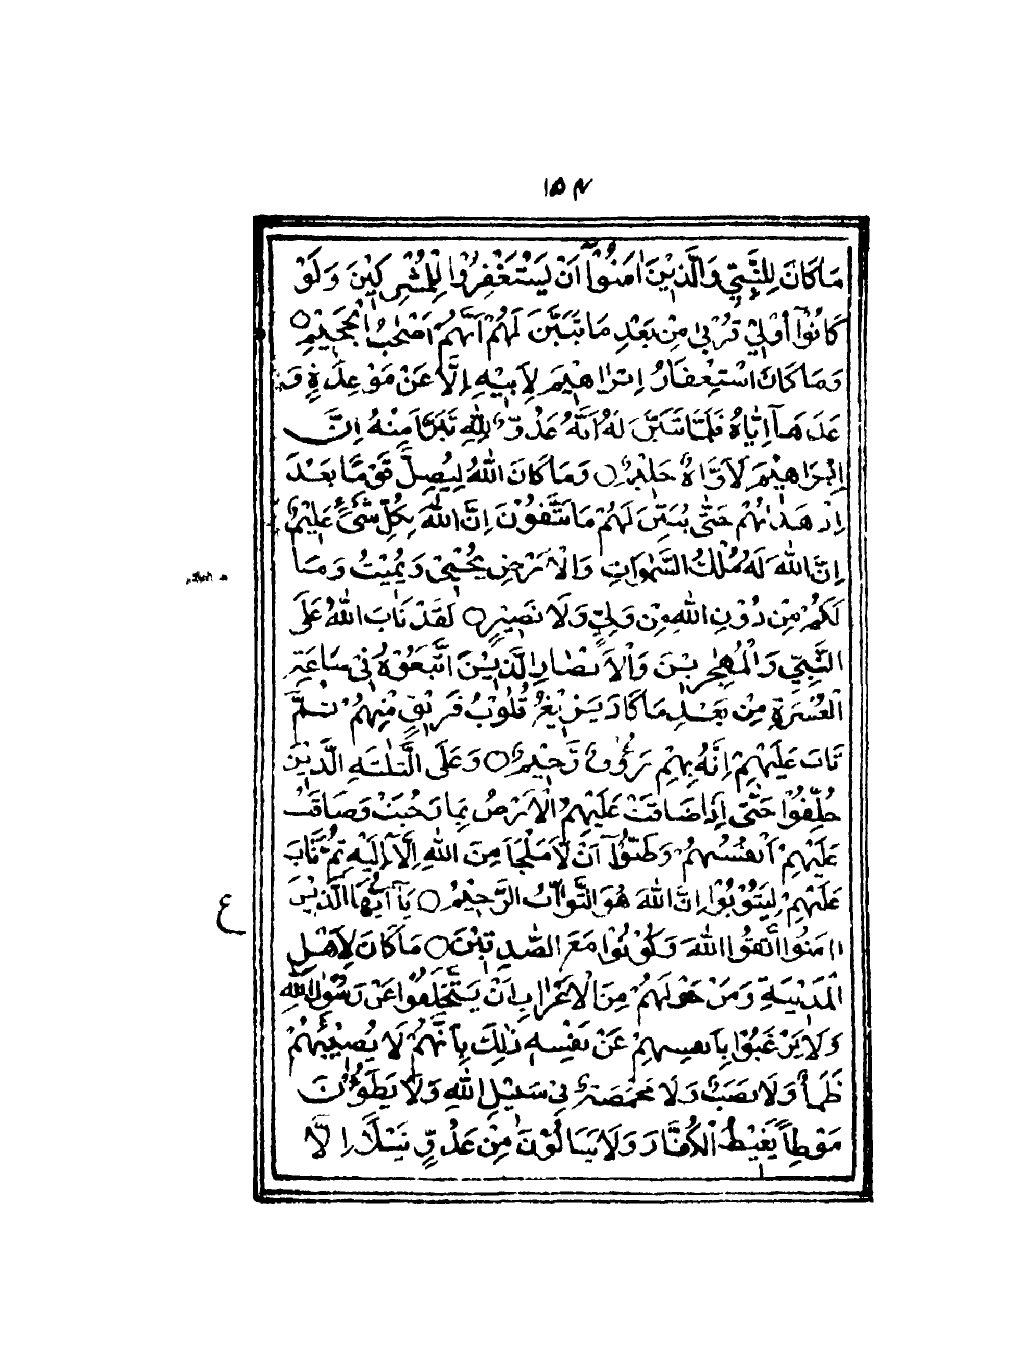 ١٥٣
مَا كَانَ لِلنَّبِيِّ وَالَّذِيْنَ اٰمَنُوْۤا اَنْ يَّسْتَغْفِرُوْا لِلْمُشْرِكِيْنَ وَلَوْ
كَانُوْۤا اُولِيْ قُرْبٰى مِنْۢ بَعْدِ مَا تَبَيَّنَ لَهُمْ اَنَّهُمْ اَصْحٰبُ الْجَحِيْمِ ○
وَمَا كَانَ اسْتِغْفَارُ اِبْرَاهِيْمَ لِاَبِيْهِ اِلَّا عَنْ مَّوْعِدَةٍ وَّ
عَدَهَاۤ اِيَّاهُ فَلَمَّا تَبَيَّنَ لَهٗ اَنَّهٗ عَدُوٌّ لِلّٰهِ تَبَرَّاَ مِنْهُ اِنَّ
اِبْرَاهِيْمَ لَاَوَّاهٌ حَلِيْمٌ ○ وَمَا كَانَ اللّٰهُ لِيُضِلَّ قَوْمًا بَعْدَ
اِذْ هَدٰىهُمْ حَتّٰى يُبَيِّنَ لَهُمْ مَّا يَتَّقُوْنَ اِنَّ اللّٰهَ بِكُلِّ شَيْءٍ عَلِيْمٌ
اِنَّ اللّٰهَ لَهٗ مُلْكُ السَّمٰوَاتِ وَالْاَرْضِ يُحْيٖ وَيُمِيْتُ وَمَا
لَكُمْ مِّنْ دُوْنِ اللّٰهِ مِنْ وَّلِيٍّ وَّلَا نَصِيْرٍ ○ لَقَدْ تَابَ اللّٰهُ عَلَى
النَّبِيِّ وَالْمُهٰجِرِيْنَ وَالْاَنْصَارِ الَّذِيْنَ اتَّبَعُوْهُ فِيْ سَاعَةِ
الْعُسْرَةِ مِنْۢ بَعْدِ مَا كَادَ يَزِيْغُ قُلُوْبُ فَرِيْقٍ مِّنْهُمْ ثُمَّ
تَابَ عَلَيْهِمْ اِنَّهٗ بِهِمْ رَءُوْفٌ رَّحِيْمٌ ○ وَّعَلَى الثَّلٰثَةِ الَّذِيْنَ
خُلِّفُوْا حَتّٰى اِذَا ضَاقَتْ عَلَيْهِمُ الْاَرْضُ بِمَا رَحُبَتْ وَضَاقَتْ
عَلَيْهِمْ اَنْفُسُهُمْ وَظَنُّوْۤا اَنْ لَّا مَلْجَاَ مِنَ اللّٰهِ اِلَّاۤ اِلَيْهِ ثُمَّ تَابَ
عَلَيْهِمْ لِيَتُوْبُوْا اِنَّ اللّٰهَ هُوَ التَّوَّابُ الرَّحِيْمُ ○ يَاۤ اَيُّهَا الَّذِيْنَ
ع
اٰمَنُوا اتَّقُوا اللّٰهَ وَكُوْنُوْا مَعَ الصّٰدِقِيْنَ ○ مَا كَانَ لِاَهْلِ
الْمَدِيْنَةِ وَمَنْ حَوْلَهُمْ مِّنَ الْاَعْرَابِ اَنْ يَّتَخَلَّفُوْا عَنْ رَّسُوْلِ اللّٰهِ
وَلَا يَرْغَبُوْا بِاَنْفُسِهِمْ عَنْ نَّفْسِهٖ ذٰلِكَ بِاَنَّهُمْ لَا يُصِيْبُهُمْ
ظَمَاٌ وَّلَا نَصَبٌ وَّلَا مَخْمَصَةٌ فِيْ سَبِيْلِ اللّٰهِ وَلَا يَطَئُوْنَ
مَوْطِئًا يَّغِيْظُ الْكُفَّارَ وَلَا يَنَالُوْنَ مِنْ عَدُوٍّ نَّيْلًا اِلَّا